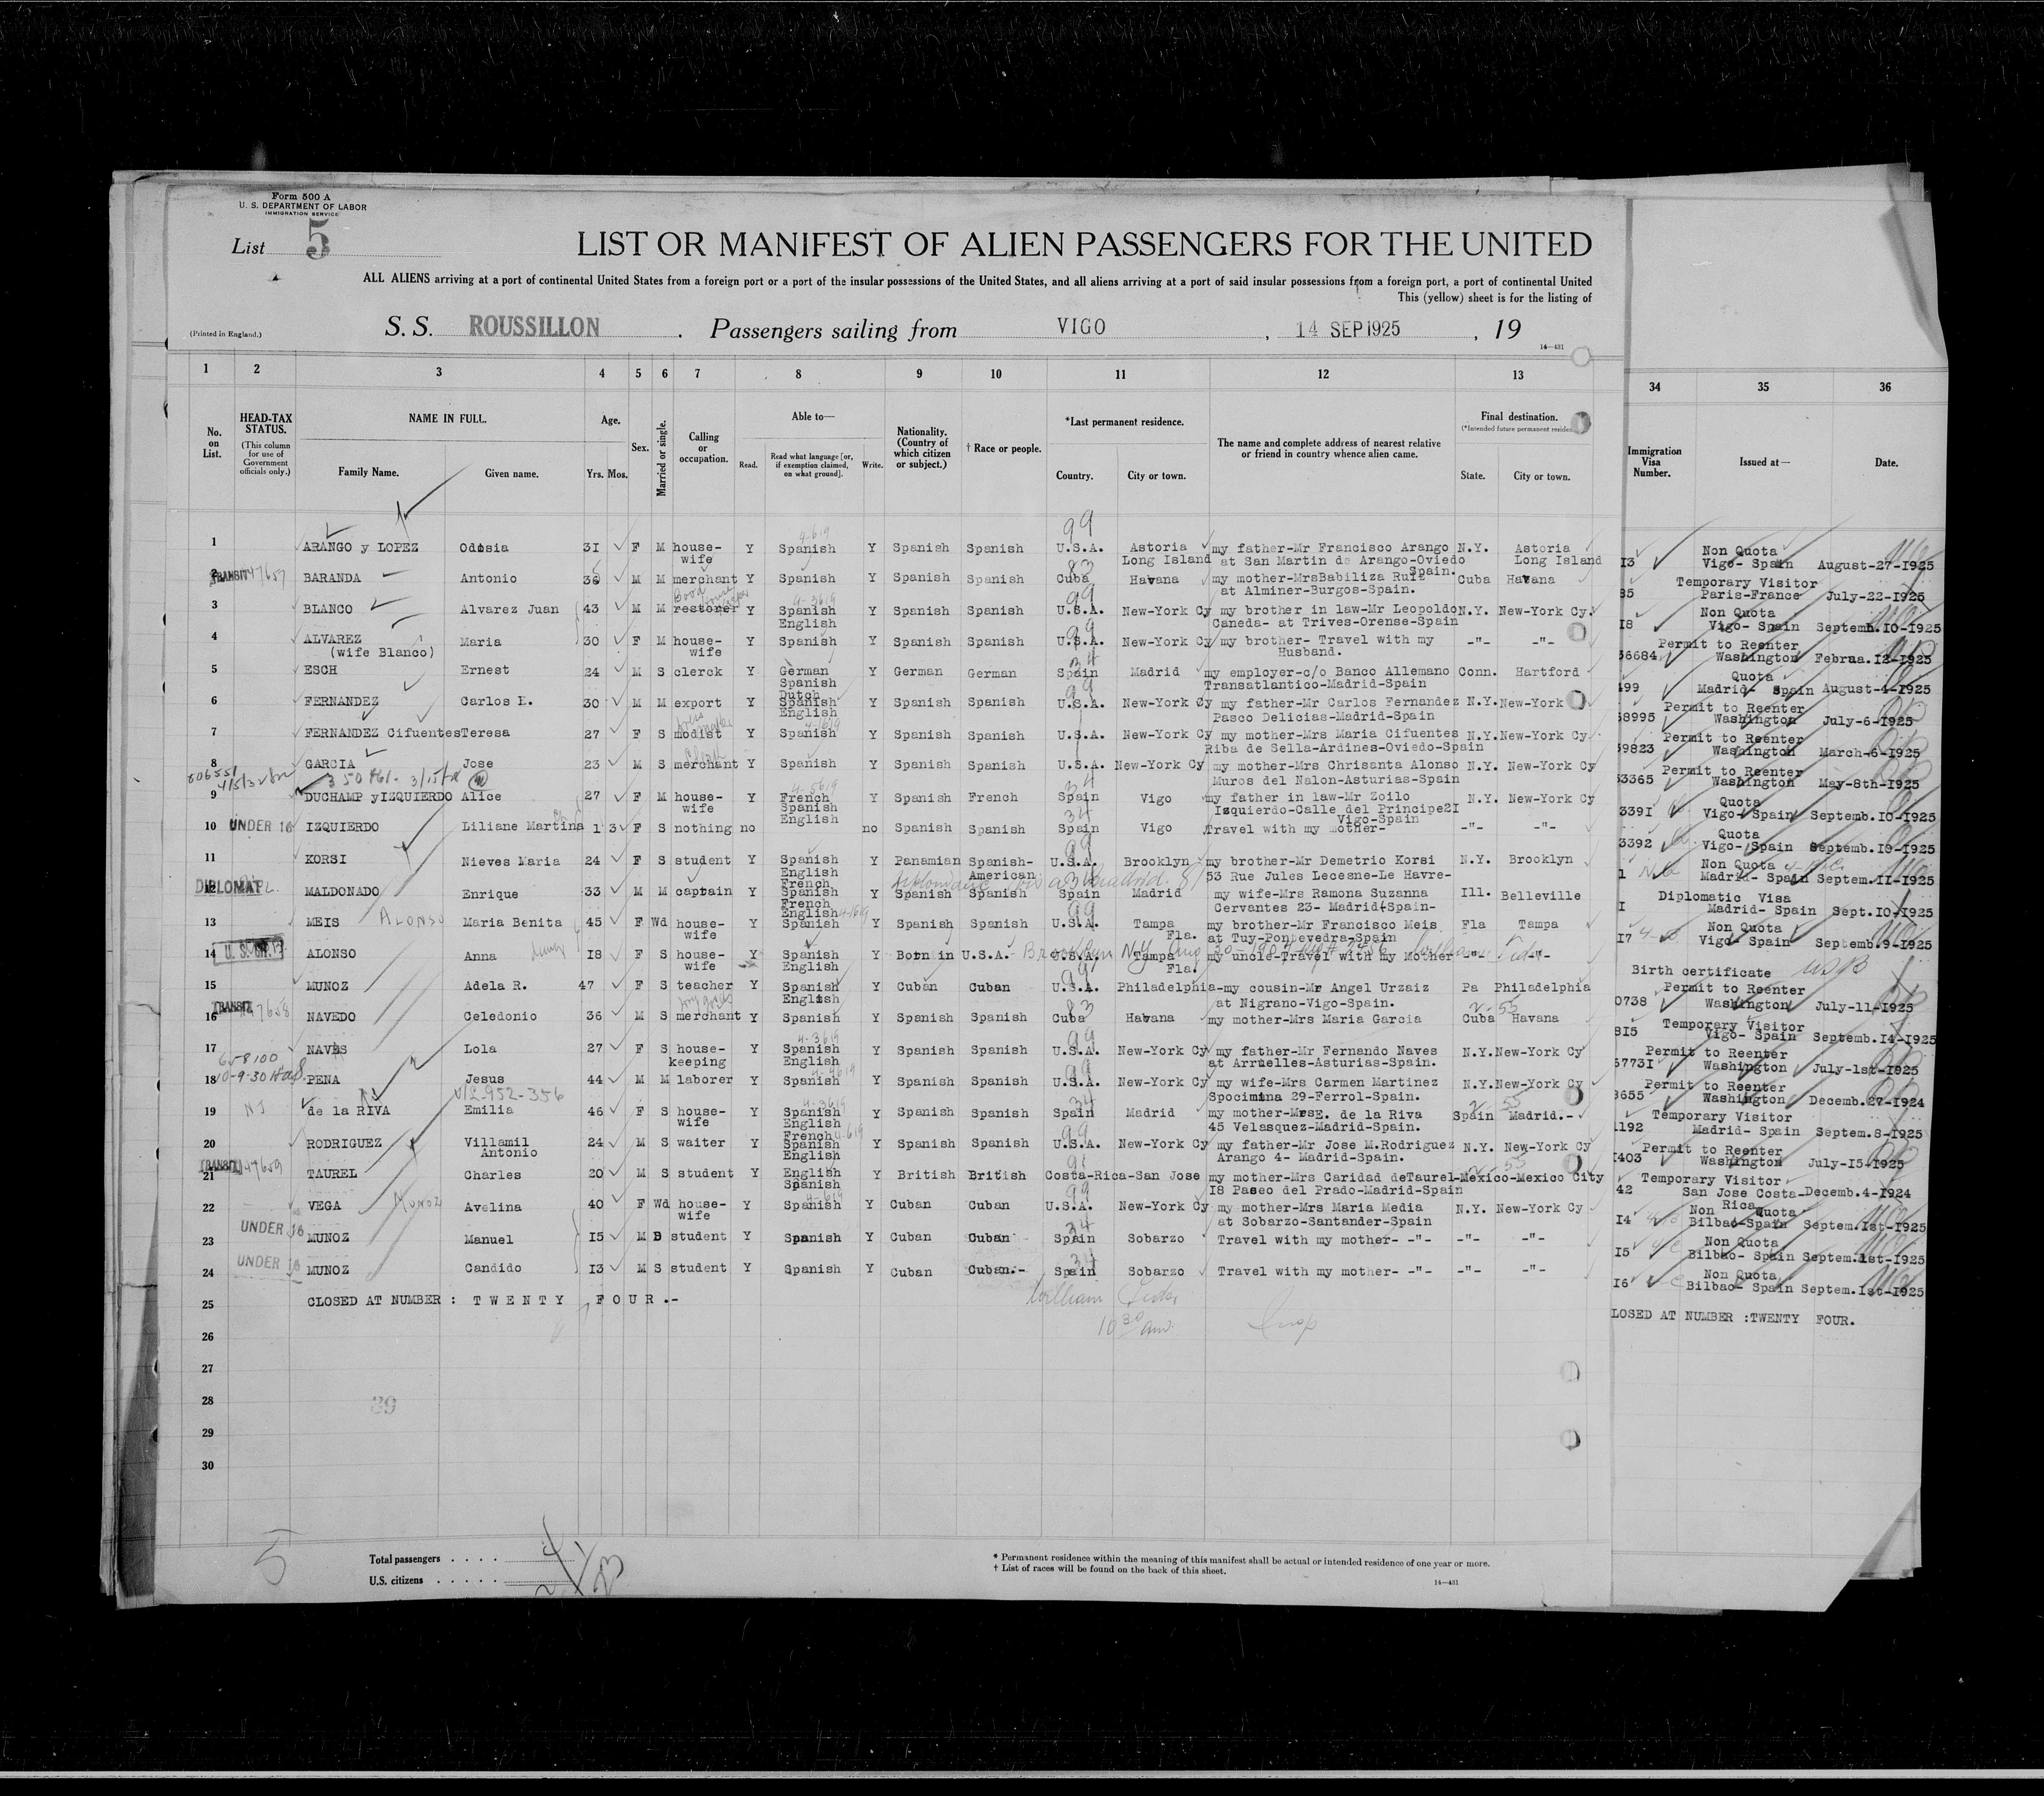 Form 500 A
U. S. DEPARTMENT OF LABOR
IMMIGRATION SERVICE
List 5
LIST OR MANIFEST OF ALIEN PASSENGERS FOR THE UNITED
ALL ALIENS arriving at a port of continental United States from a foreign port or a port of the insular possessions of the United States, and all aliens arriving at a port of said insular possessions from a foreign port, a port of continental United
This (yellow) sheet is for the listing of
(Printed in England.)
S. S. ROUSSILLON . Passengers sailing from VIGO , 14 SEP 1925 , 19
14—431
1 2 3 4 5 6 7 8 9 10 11 12 13 34 35 36
No. on List.
HEAD-TAX STATUS.
(This column for use of Government officials only.)
NAME IN FULL.
Family Name. Given name.
Age.
Yrs. Mos.
Sex.
Married or single.
Calling or occupation.
Able to—
Read. Read what language [or, if exemption claimed, on what ground]. Write.
Nationality. (Country of which citizen or subject.)
† Race or people.
*Last permanent residence.
Country. City or town.
The name and complete address of nearest relative or friend in country whence alien came.
Final destination.
(*Intended future permanent residen
State. City or town.
Immigration Visa Number.
Issued at—
Date.
1 ARANGO y LOPEZ Odosia 31 F M house-wife Y Spanish Y Spanish Spanish U.S.A. Astoria Long Island my father-Mr Francisco Arango at San Martin de Arango-Oviedo Spain. N.Y. Astoria Long Island I3 Non Quota Vigo- Spain August-27-I925
2 TRANSIT 47657 BARANDA Antonio 36 M M merchant Y Spanish Y Spanish Spanish Cuba Havana my mother-MrsBabiliza Ruiz at Alminer-Burgos-Spain. Cuba Havana 85 Temporary Visitor Paris-France July-22-I925
3 BLANCO Alvarez Juan 43 M M restorer Y Spanish English Y Spanish Spanish U.S.A. New-York Cy my brother in law-Mr Leopoldo Caneda- at Trives-Orense-Spain N.Y. New-York Cy. I8 Non Quota Vigo- Spain Septemb.IO-I925
4 ALVAREZ (wife Blanco) Maria 30 F M house-wife Y Spanish Y Spanish Spanish U.S.A. New-York Cy my brother- Travel with my Husband. -"- -"- 36684 Permit to Reenter Washington Februa.I2-I925
5 ESCH Ernest 24 M S clerck Y German Spanish Dutch Y German German Spain Madrid my employer-c/o Banco Allemano Transatlantico-Madrid-Spain Conn. Hartford 499 Quota Madrid- Spain August-4-I925
6 FERNANDEZ Carlos E. 30 M M export Y Spanish English Y Spanish Spanish U.S.A. New-York Cy my father-Mr Carlos Fernandez Pasco Delicias-Madrid-Spain N.Y. New-York 58995 Permit to Reenter Washington July-6-I925
7 FERNANDEZ Cifuentes Teresa 27 F S modist Y Spanish Y Spanish Spanish U.S.A. New-York Cy my mother-Mrs Maria Cifuentes Riba de Sella-Ardines-Oviedo-Spain N.Y. New-York Cy. 39823 Permit to Reenter Washington March-6-I925
8 GARCIA Jose 23 M S merchant Y Spanish Y Spanish Spanish U.S.A. New-York Cy my mother-Mrs Chrisanta Alonso Muros del Nalon-Asturias-Spain N.Y. New-York Cy 53365 Permit to Reenter Washington May-8th-I925
9 DUCHAMP yIZQUIERDO Alice 27 F M house-wife Y French Spanish English Y Spanish French Spain Vigo my father in law-Mr Zoilo Izquierdo-Calle del Principe2I Vigo-Spain N.Y. New-York Cy 339I Quota Vigo-Spain Septemb.IO-I925
10 UNDER 16 IZQUIERDO Liliane Martina 1 3 F S nothing no no Spanish Spanish Spain Vigo Travel with my mother- -"- -"- 3392 Quota Vigo-Spain Septemb.IO-I925
11 KORSI Nieves Maria 24 F S student Y Spanish English French Y Panamian Spanish-American U.S.A. Brooklyn my brother-Mr Demetrio Korsi 53 Rue Jules Lecesne-Le Havre- N.Y. Brooklyn 1 Non Quota Madrid- Spain Septem.II-I925
12 DIPLOMAT MALDONADO Enrique 33 M M captain Y Spanish French English Y Spanish Spanish Spain Madrid my wife-Mrs Ramona Suzanna Cervantes 23- Madrid(Spain- Ill. Belleville I Diplomatic Visa Madrid- Spain Sept.IO-I925
13 MEIS ALONSO Maria Benita 45 F Wd house-wife Y Spanish Y Spanish Spanish U.S.A. Tampa Fla. my brother-Mr Francisco Meis at Tuy-Pontevedra-Spain Fla Tampa I7 Non Quota Vigo- Spain Septemb.9-I925
14 ALONSO Anna I8 F S house-wife Y Spanish English Y Born in U.S.A. Brooklyn NY U.S.A. Tampa Fla. my uncle-Travel with my Mother -"- -"- Birth certificate USB
15 MUNOZ Adela R. 47 F S teacher Y Spanish English Y Cuban Cuban U.S.A. Philadelphia-my cousin-Mr Angel Urzaiz at Nigrano-Vigo-Spain. Pa Philadelphia 0738 Permit to Reenter Washington July-11-I925
16 TRANSIT 47658 NAVEDO Celedonio 36 M S merchant Y Spanish Y Spanish Spanish Cuba Havana my mother-Mrs Maria Garcia Cuba Havana 8I5 Temporary Visitor Vigo- Spain Septemb.I4-I925
17 NAVES Lola 27 F S house-keeping Y Spanish English Y Spanish Spanish U.S.A. New-York Cy my father-Mr Fernando Naves at Arruelles-Asturias-Spain. N.Y. New-York Cy 6773I Permit to Reenter Washington July-1st-I925
18 658100 10-9-30 PENA Jesus 44 M M laborer Y Spanish Y Spanish Spanish U.S.A. New-York Cy my wife-Mrs Carmen Martinez Spocimina 29-Ferrol-Spain. N.Y. New-York Cy 8655 Permit to Reenter Washington Decemb.27-I924
19 NJ de la RIVA Emilia 46 F S house-wife Y Spanish English French Y Spanish Spanish Spain Madrid my mother-MrsE. de la Riva 45 Velasquez-Madrid-Spain. Spain Madrid.-- 1192 Temporary Visitor Madrid- Spain Septem.8-I925
20 RODRIGUEZ Villamil Antonio 24 M S waiter Y Spanish English Y Spanish Spanish U.S.A. New-York Cy my father-Mr Jose M.Rodriguez Arango 4- Madrid-Spain. N.Y. New-York Cy I403 Permit to Reenter Washington July-I5-I925
21 TRANSIT 47659 TAUREL Charles 20 M S student Y English Spanish Y British British Costa-Rica-San Jose my mother-Mrs Caridad deTaurel-Mexico-Mexico City I8 Paseo del Prado-Madrid-Spain 42 Temporary Visitor San Jose Costa-Rica Decemb.4-I924
22 VEGA MUNOZ Avelina 40 F Wd house-wife Y Spanish Y Cuban Cuban U.S.A. New-York Cy my mother-Mrs Maria Media at Sobarzo-Santander-Spain N.Y. New-York Cy I4 Non Quota Bilbao-Spain Septem.1st-I925
23 UNDER 16 MUNOZ Manuel I5 M S student Y Spanish Y Cuban Cuban Spain Sobarzo Travel with my mother- -"- -"- -"- I5 Non Quota Bilbao- Spain Septem.1st-I925
24 UNDER 16 MUNOZ Candido I3 M S student Y Spanish Y Cuban Cuban.- Spain Sobarzo Travel with my mother- -"- -"- -"- I6 Non Quota Bilbao- Spain Septem.Ist-I925
25 CLOSED AT NUMBER : T W E N T Y F O U R .-
LOSED AT NUMBER :TWENTY FOUR.
26
27
28
39
29
30
5
Total passengers . . . .
U.S. citizens . . . . .
* Permanent residence within the meaning of this manifest shall be actual or intended residence of one year or more.
† List of races will be found on the back of this sheet.
14—431